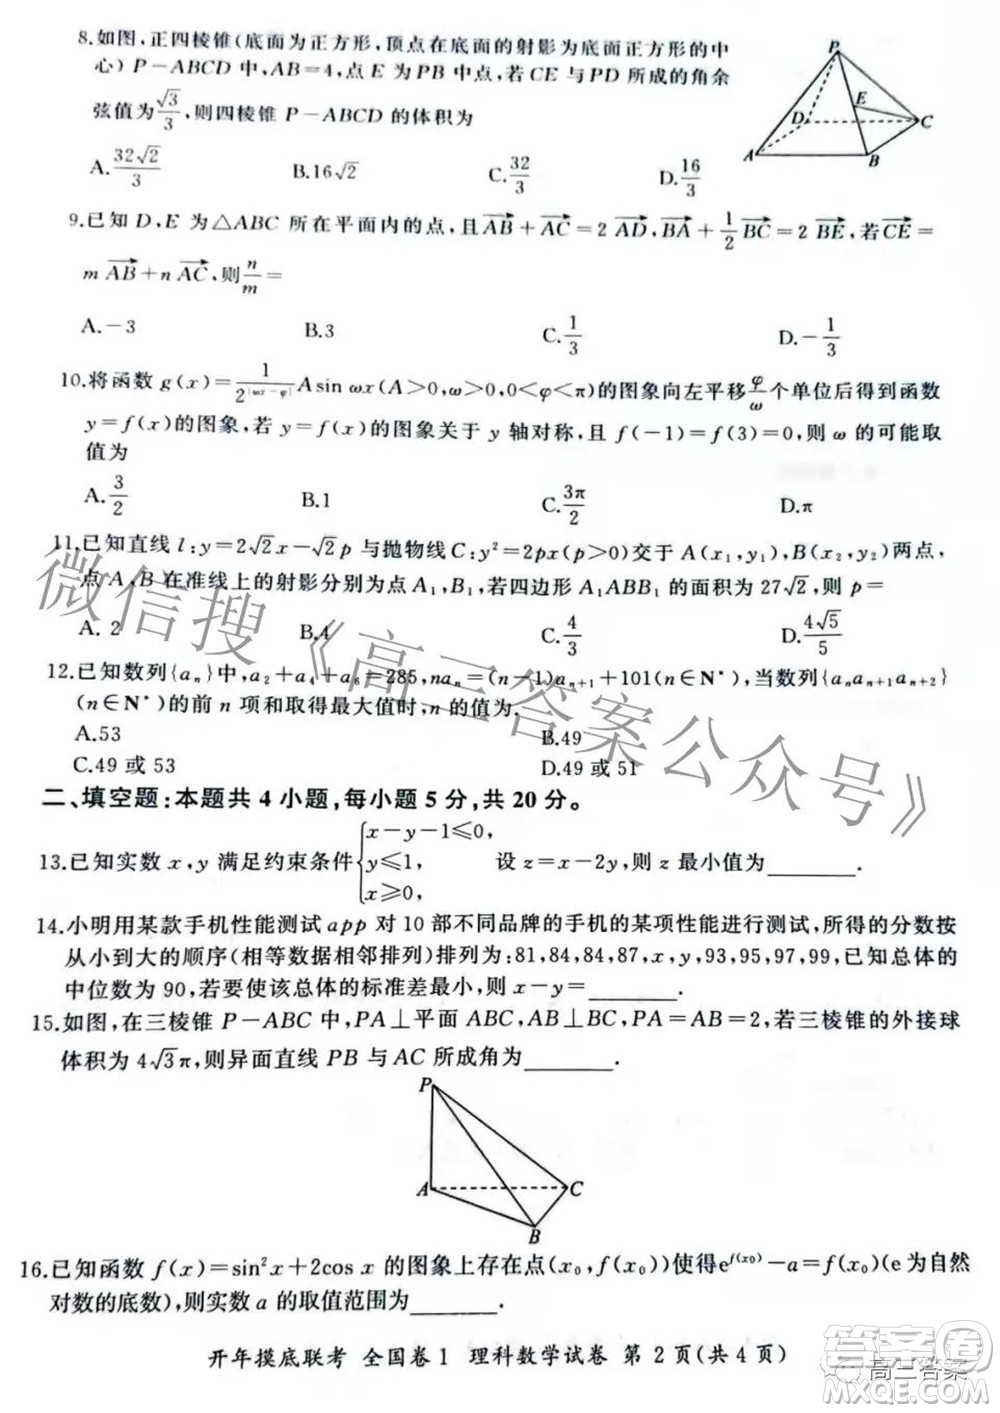 8.如图,正四棱锥(底面为正方形,顶点在底面的射影为底面正方形的中
心)P－ABCD 中,AB=4,点 E 为 PB 中点,若 CE 与 PD 所成的角余
弦值为√3/3,则四棱锥 P－ABCD 的体积为
A.32√2/3 B.16√2 C.32/3 D.16/3
P
E
D
C
A
B
9.已知 D,E 为△ABC 所在平面内的点,且AB+AC=2 AD,BA+1/2 BC=2 BE,若CE=
m AB+n AC,则n/m=
A.－3 B.3 C.1/3 D.－1/3
10.将函数 g(x)=1/2^|ωx－φ| A sin ωx(A>0,ω>0,0<φ<π)的图象向左平移φ/ω个单位后得到函数
y=f(x)的图象,若 y=f(x)的图象关于 y 轴对称,且 f(－1)=f(3)=0,则 ω 的可能取
值为
A.3/2 B.1 C.3π/2 D.π
11.已知直线 l:y=2√2x－√2p 与抛物线 C:y²=2px(p>0)交于 A(x₁,y₁),B(x₂,y₂)两点,
点 A、B 在准线上的射影分别为点 A₁,B₁,若四边形 A₁ABB₁ 的面积为 27√2,则 p=
A. 2 B.4 C.4/3 D.4√5/5
12.已知数列{aₙ}中,a₂+a₄+a₆=285,naₙ=(n－1)aₙ₊₁+101(n∈N*),当数列{aₙaₙ₊₁aₙ₊₂}
(n∈N*)的前 n 项和取得最大值时,n 的值为.
A.53 B.49
C.49 或 53 D.49 或 51
二、填空题:本题共 4 小题,每小题 5 分,共 20 分。
13.已知实数 x,y 满足约束条件{x－y－1≤0, y≤1, x≥0, 设 z=x－2y,则 z 最小值为______.
14.小明用某款手机性能测试 app 对 10 部不同品牌的手机的某项性能进行测试,所得的分数按
从小到大的顺序(相等数据相邻排列)排列为:81,84,84,87,x,y,93,95,97,99,已知总体的
中位数为 90,若要使该总体的标准差最小,则 x－y=______.
15.如图,在三棱锥 P－ABC 中,PA⊥平面 ABC,AB⊥BC,PA=AB=2,若三棱锥的外接球
体积为 4√3π,则异面直线 PB 与 AC 所成角为______.
P
A
C
B
16.已知函数 f(x)=sin²x+2cos x 的图象上存在点(x₀,f(x₀))使得e^f(x₀)－a=f(x₀)(e 为自然
对数的底数),则实数 a 的取值范围为______.
开年摸底联考 全国卷 1 理科数学试卷 第 2 页(共 4 页)
微信搜《高三答案公众号》
高三答案
答案圈
MXQE.COM